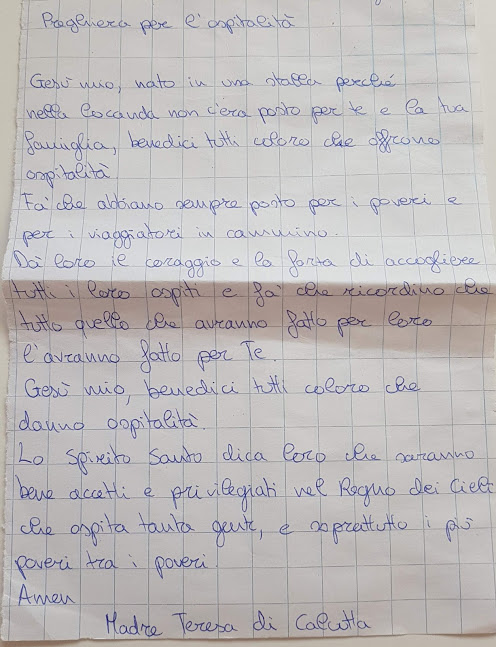 Preghiera per l'ospitalità
Gesù mio, nato in una stalla perché
nella locanda non c'era posto per te e la tua
famiglia, benedici tutti coloro che offrono
ospitalità.
Fa' che abbiano sempre posto per i poveri e
per i viaggiatori in cammino.
Dà loro il coraggio e la forza di accogliere
tutti i loro ospiti e fa' che ricordino che
tutto quello che avranno fatto per loro
l'avranno fatto per Te.
Gesù mio, benedici tutti coloro che
danno ospitalità.
Lo Spirito Santo dica loro che saranno
bene accetti e privilegiati nel Regno dei Cieli
che ospita tanta gente, e soprattutto i più
poveri tra i poveri.
Amen
Madre Teresa di Calcutta